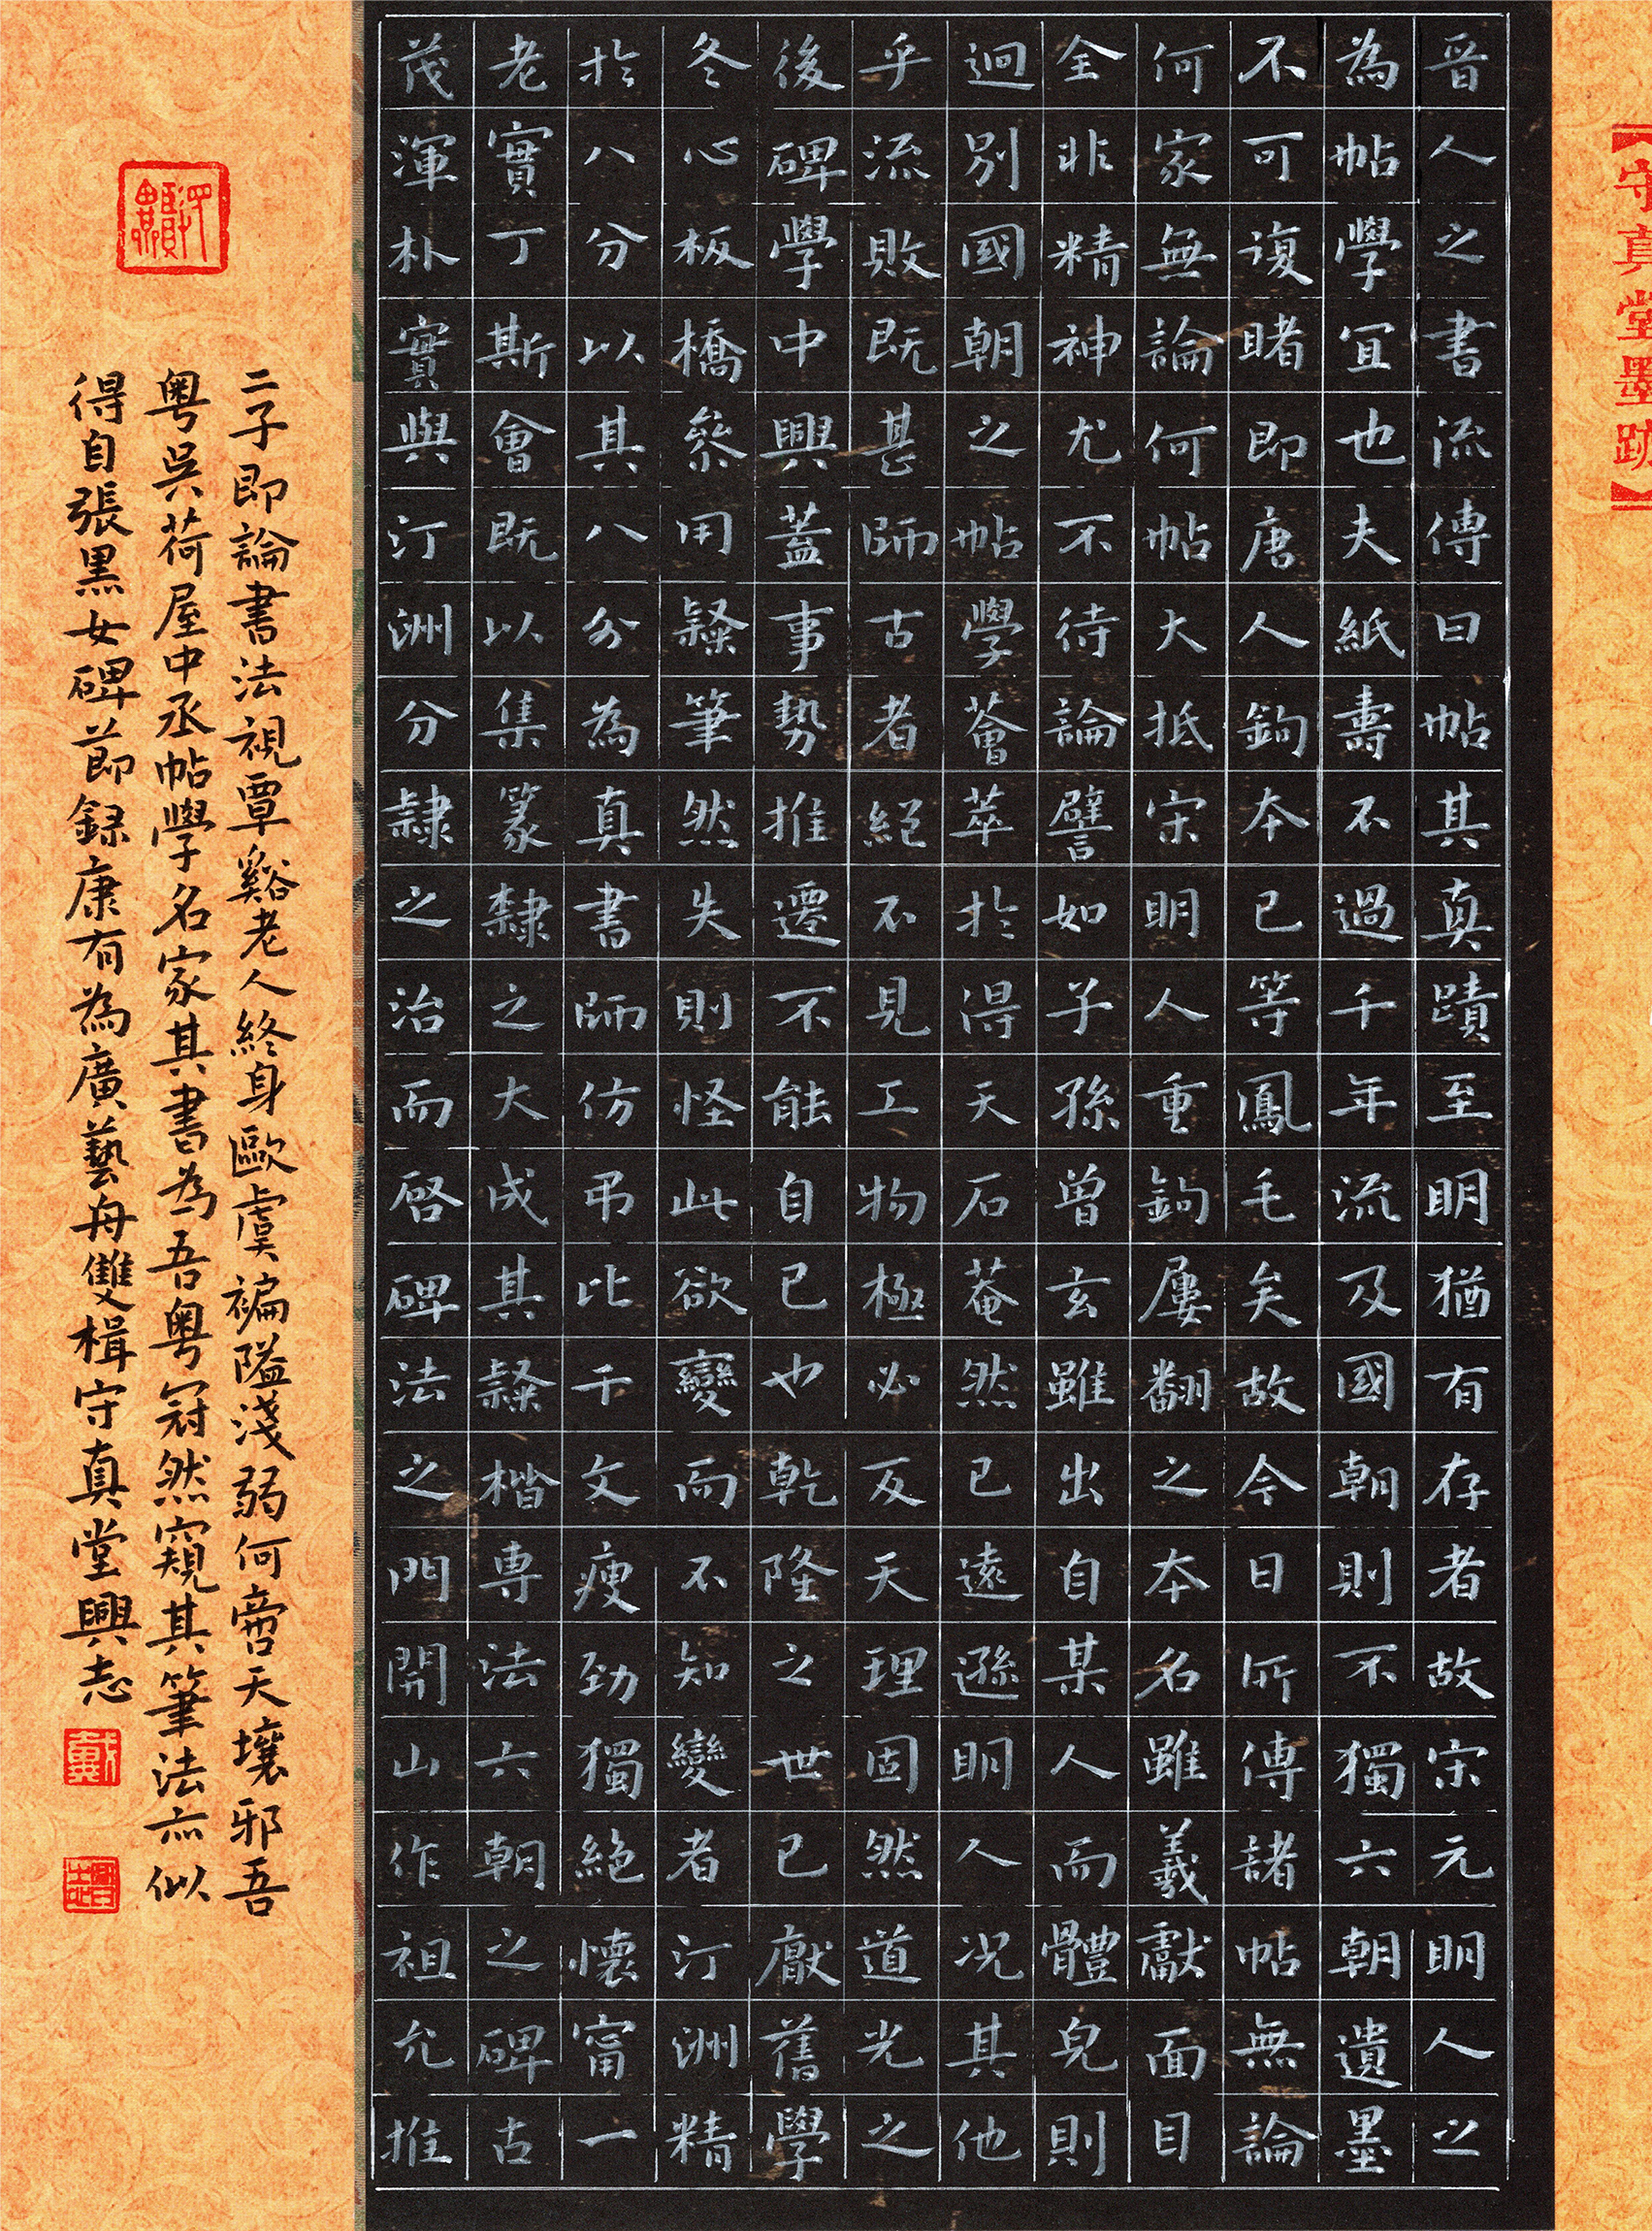 【守真堂墨跡】
晉人之書流傳曰帖其真蹟至明猶有存者故宋元明人之
為帖學宜也夫紙壽不過千年流及國朝則不獨六朝遺墨
不可復睹即唐人鉤本已等鳳毛矣故今日所傳諸帖無論
何家無論何帖大抵宋明人重鉤屢翻之本名雖羲獻面目
全非精神尤不待論譬如子孫曾玄雖出自某人而體皃則
迥別國朝之帖學薈萃於得天石菴然已遠遜明人況其他
乎流敗既甚師古者絕不見工物極必反天理固然道光之
後碑學中興蓋事勢推遷不能自已也乾隆之世已厭舊學
冬心板橋參用隸筆然失則怪此欲變而不知變者汀洲精
於八分以其八分為真書師仿弔比干文瘦勁獨絕懷甯一
老實丁斯會既以集篆隸之大成其隸楷專法六朝之碑古
茂渾朴實與汀洲分隸之治而啓碑法之門開山作祖允推
二子即論書法視覃谿老人終身歐虞褊隘淺弱何啻天壤邪吾
粵吳荷屋中丞帖學名家其書為吾粵冠然窺其筆法亦似
得自張黑女碑節錄康有為廣藝舟雙楫守真堂興志